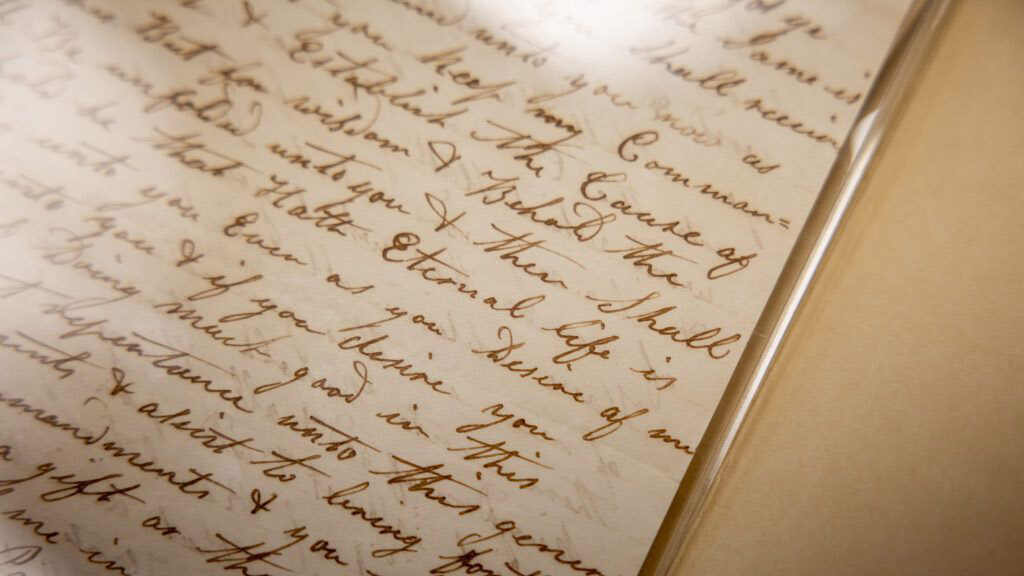 ye
Same is
Shall receive
unto you now as
you Keep my Comman=
& Establish the Cause of
But for wisdom & Behold the
Be unfolded unto you & then Shall
that Hath Eternal life is
unto you Even as you Desire of me
unto you & if you desire you
Doing much good in this
repentance unto this gener
ents & asist to bring for
mandments & you
a gift or the
me in